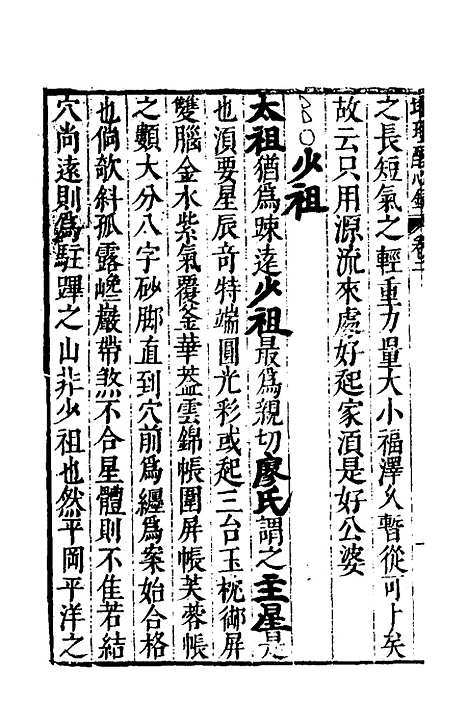 之長短氣之輕重力量大小福澤久暫從可卜矣
故云只用源流來處好起家湏是好公婆
少祖
太祖猶為踈逺少祖最為親切廖氏謂之主星是
也湏要星辰竒特端圓光彩或起三台玉枕御屏
雙腦金水紫氣覆釜華葢雲錦帳圍屏帳芙蓉帳
之類大分八字砂脚直到穴前為纏為案始合格
也倘欹斜孤露巉巖帶煞不合星體則不佳若結
穴尚遠則為駐蹕之山非少祖也然平岡平洋之